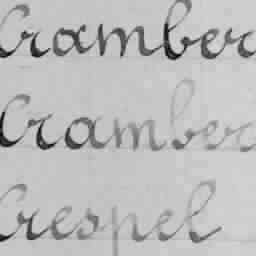 Cramber
Cramber
Crespel